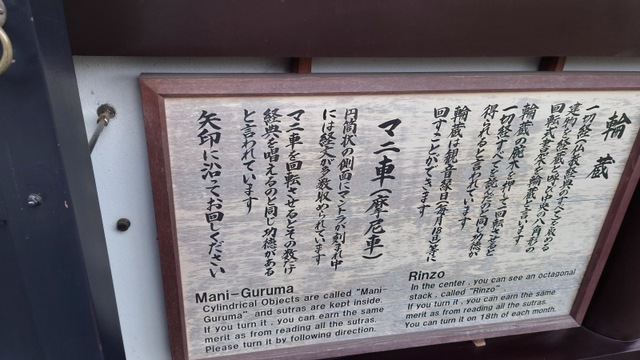 輪蔵
一切経(仏教経典のすべて)を収める
建物を経蔵と呼び中央の八角形の
回転式書架を輪蔵と言います
輪蔵の腕木を押して回転させると
一切経すべてを読んだのと同じ功徳が
得られると言われています
輪蔵は観音縁日(毎月18日)に
回すことができます
マニ車(摩尼車)
円筒状の側面にマントラが刻まれ中
には経文が多数収められています
マニ車を回転させるとその数だけ
経典を唱えるのと同じ功徳がある
と言われています
矢印に沿ってお回しください
Mani-Guruma
Cylindrical Objects are called "Mani-
Guruma" and sutras are kept inside.
If you turn it, you can earn the same
merit as from reading all the sutras.
Please turn it by following direction.
Rinzo
In the center, you can see an octagonal
stack, called "Rinzo"
If you turn it, you can earn the same
merit as from reading all the sutras.
You can turn on 18th of each month.